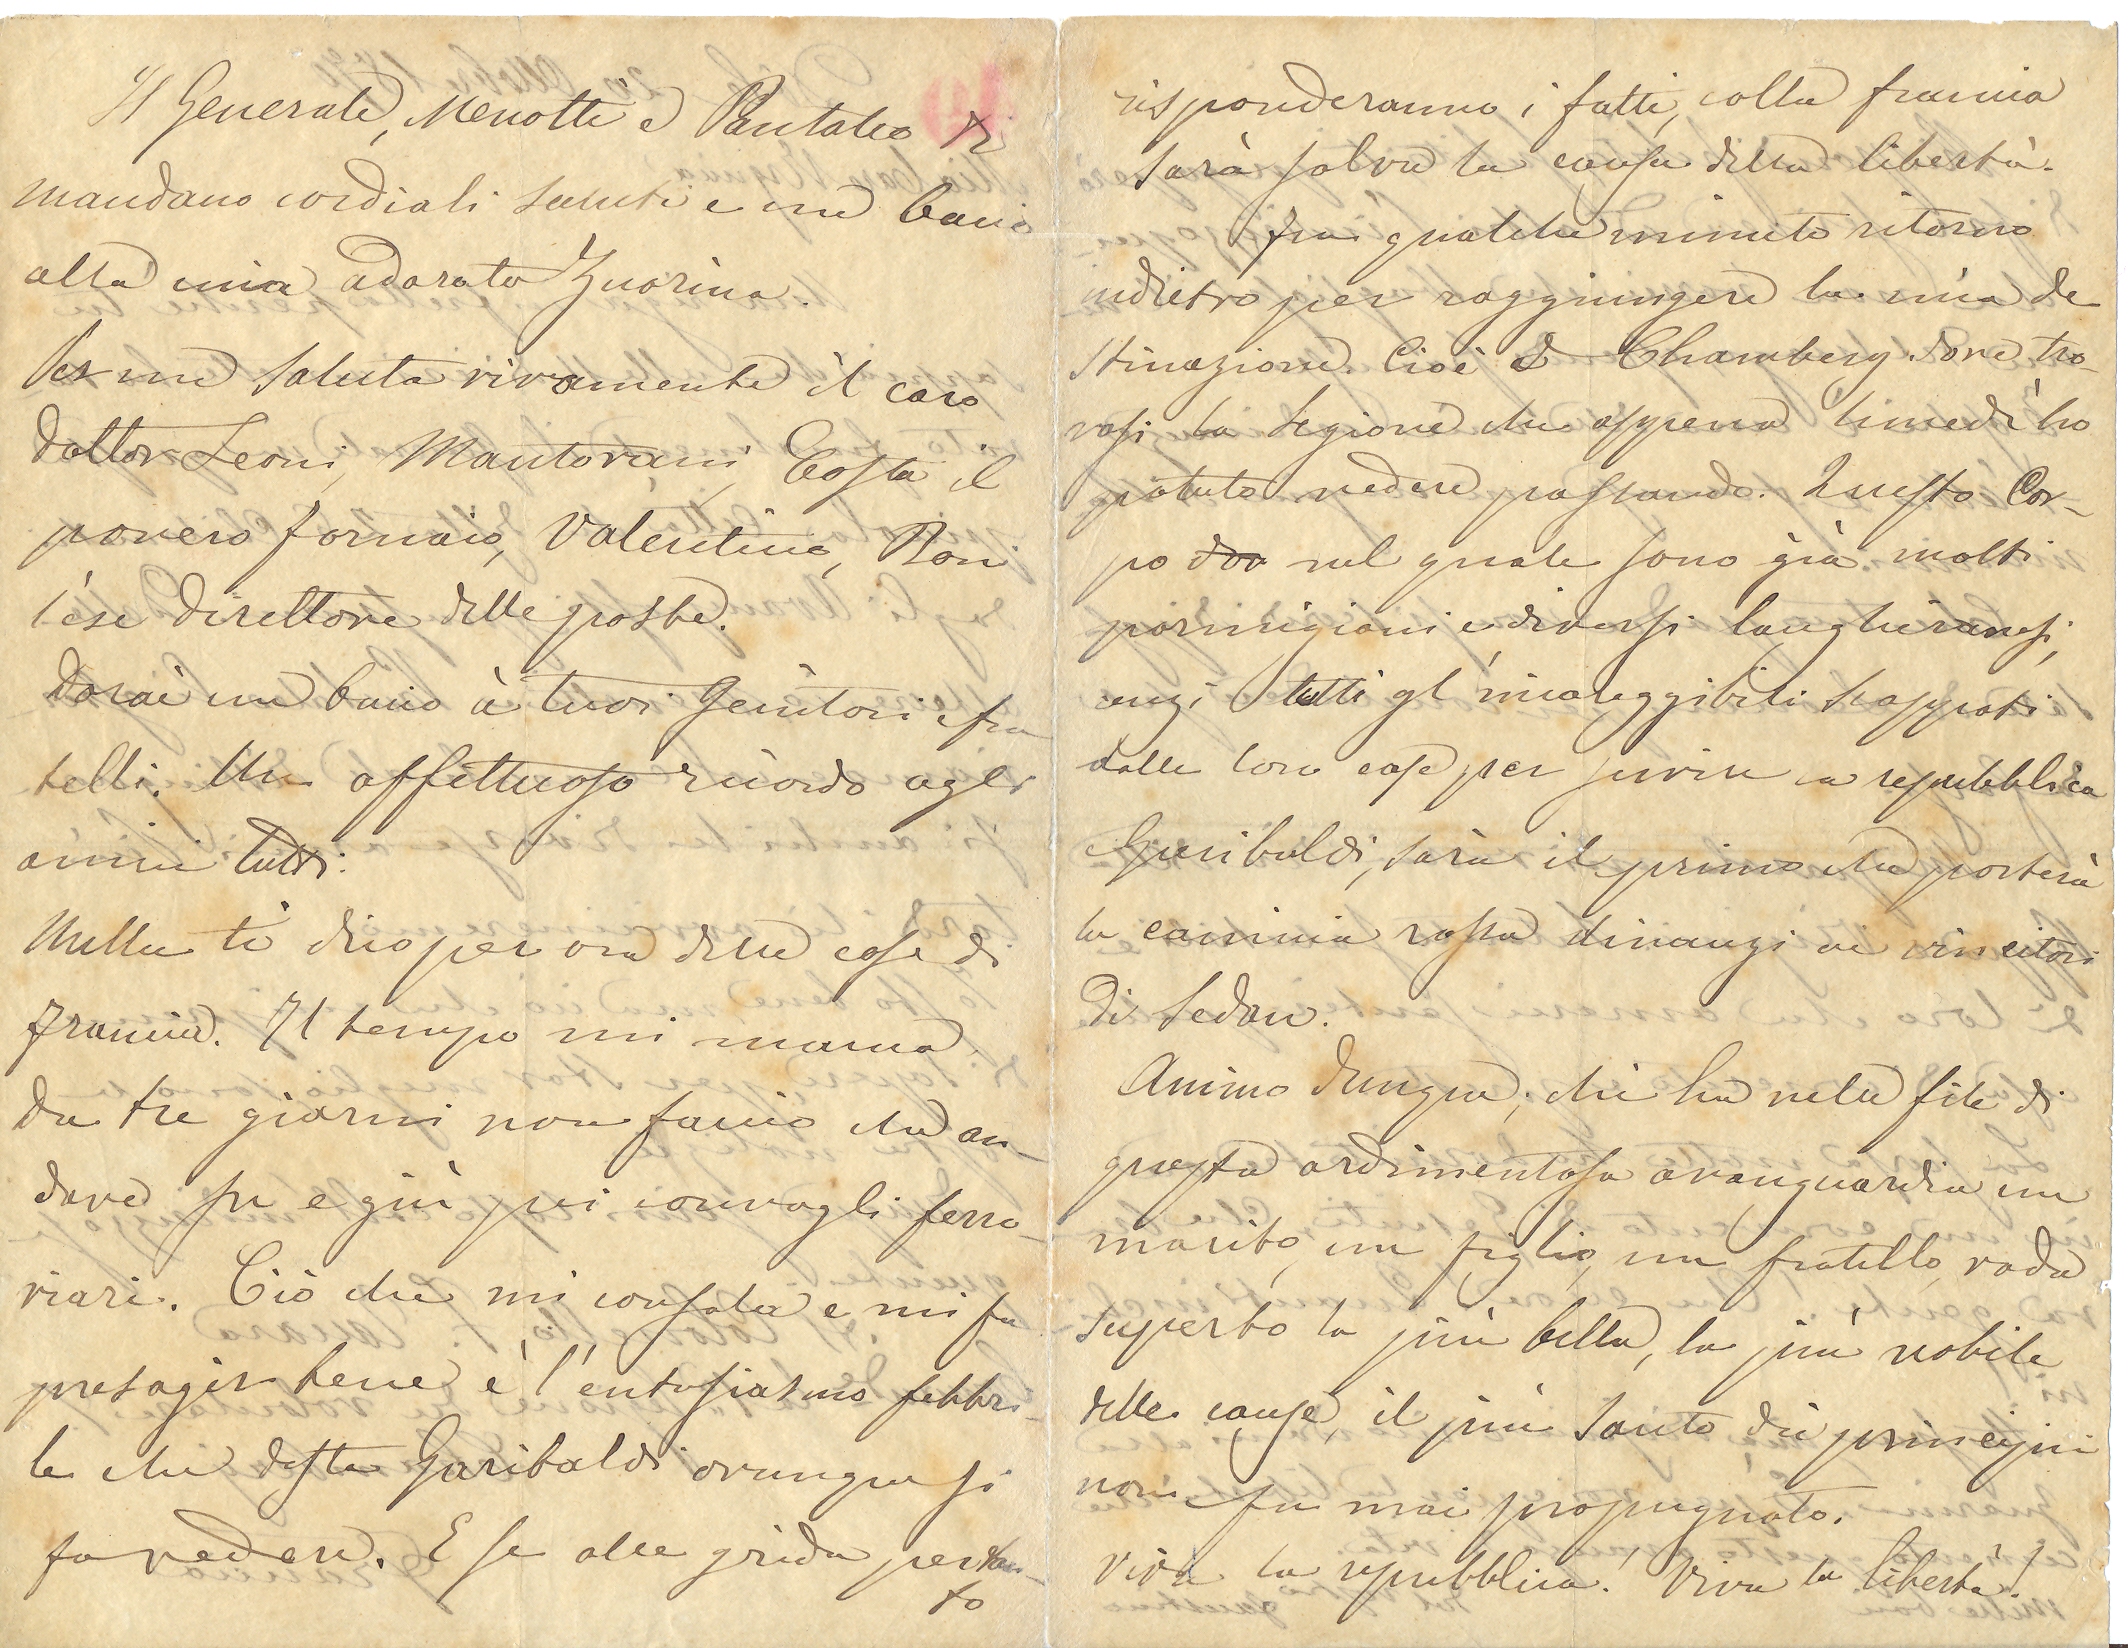 Il Generale, Menotti e Pantaleo ti
mandano cordiali saluti e un bacio
alla mia adorata Guerina.
Per me saluta vivamente il caro
dottor Leoni, Mantovani, Costa, il
povero fornaio, Valentino,
direttore delle poste.
Darai un bacio a' tuoi Genitori e fra
telli. Un affettuoso ricordo agli
amici tutti.
Nulla ti dico per ora delle cose di
Francia. Il tempo mi manca
da tre giorni non faccio che an-
dare su e giù pei convogli ferro-
viari. Ciò che mi consola e mi fa
presagir bene è l'entusiasmo febbri-
le che desta Garibaldi ovunque si
fa vedere. E se alle grida pertan-
to
risponderanno i fatti, colla francia
sarà salva la causa della libertà.
Fra qualche minuto ritorno
indietro per raggiungere la mia de
stinazione. Cioè a Chambery dove tro-
vasi la legione che appena lunedì ho
potuto vedere passando. Questo Cor-
po nel quale sono già molti
parmigiani e diversi langhiranesi,
anzi tutti gl'incoreggibili scappati
dalle loro case per servire la repubblica
Garibaldi, sarà il primo che porterà
la camicia rossa dinanzi ai vincitori
di Sedan.
Animo dunque; chi ha nelle file di
questa ardimentosa avanguardia un
marito, un figlio, un fratello, vada
superbo la più bella, la più nobile
delle cause, il più santo dei principii
non fu mai propugnato.
Viva la repubblica! Viva la libertà!